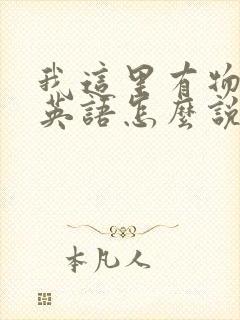 我這里有物
英語怎麼說
本凡人